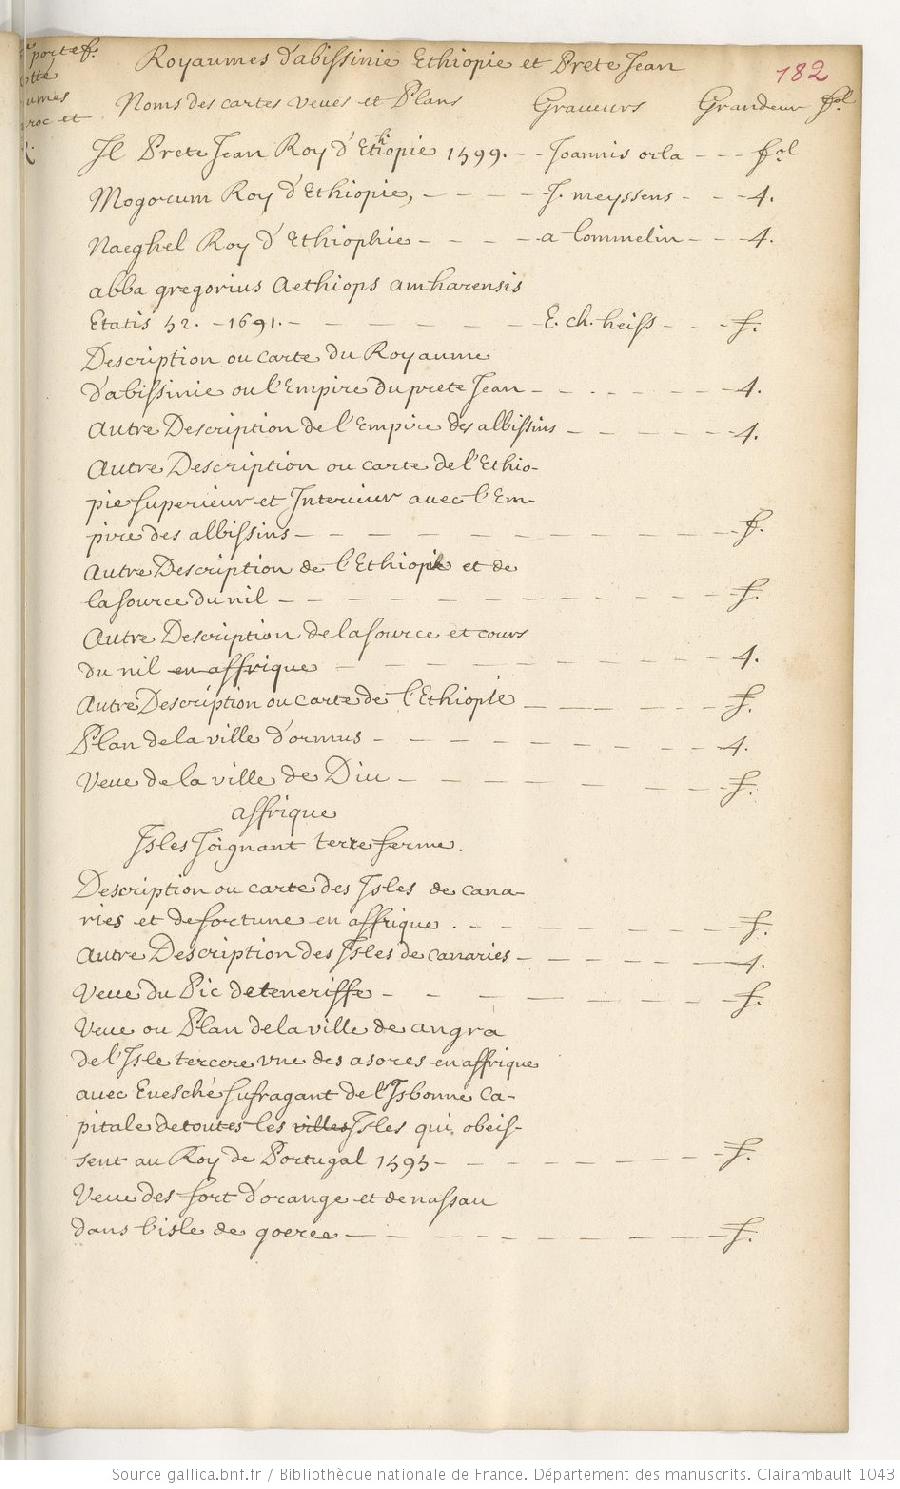 portef.
Royaumes d'abissinie Ethiopie et Prete Jean
182
Noms des cartes veues et Plans Graveurs Grandeur fol
umes
roc et
Jl Prete Jean Roy d'Ethiopie 1599. - - Joannis orla - - - fol
Mogorum Roy d'Ethiopie, - - - - J. meyssens - - - 4.
Naeghel Roy d'Ethiophie - - - - a Commelin - - - 4.
abba gregorius Aethiops amharensis
Etatis 52. - 1691. - - - - - - - E. ch. heiss - - - f.
Description ou carte du Royaume
d'abissinie ou l'Empire du prete Jean - - - - - - - 4.
Autre Description de l'Empire des albissins - - - - - 4.
Autre Description ou carte de l'Ethio-
pie superieur et Interieur avec l'Em-
pire des albissins - - - - - - - - - - f.
Autre Description de l'Ethiopie et de
la source du nil - - - - - - - - - - f.
Autre Description de la source et cours
du nil en affrique - - - - - - - - - 4.
Autre Description ou carte de l'Ethiopie - - - - - f.
Plan de la ville d'ormus - - - - - - - - - 4.
Veue de la ville de Diu - - - - - - - - f.
affrique
Jsles Joignant terre ferme.
Description ou carte des Jsles de cana-
ries et de fortune en affrique. - - - - - - - f.
Autre Description des Jsles de Canaries - - - - - - 4.
Veue du Pic de teneriffe - - - - - - - - f.
Veue ou Plan de la ville de angra
de l'Jsle tercere vne des asores en affrique
avec Evesché sufragant de l'Jsbonne Ca-
pitale de toutes les villes Jsles qui obeis-
sent au Roy de Portugal 1595 - - - - - - - f.
Veue des fort d'orange et de nassau
dans l'isle de goeree - - - - - - - - - f.
Source gallica.bnf.fr / Bibliothèque nationale de France. Département des manuscrits. Clairambault 1043